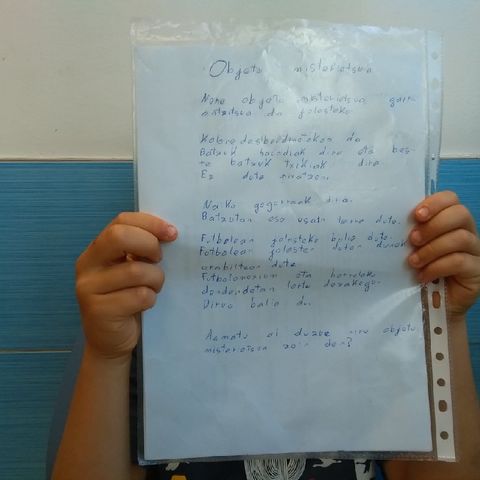 Objetu misteriotsua
Nere objetu misteriotsua garra
da jolasteko
Kolore desberdinetakoa da
Batzuk haundiak dira eta bes-
te batzuk txikiak dira
Ez dute
Naiko gogorrak dira.
Batzutan oso usain txarra dute.
Futbolean jolasteko balio dute.
Futbolean jolasten duten danak
erabiltzen dute
eta horrelako
dendendetan lortu dezakegu.
Dirua balio du.
Asmatu al duzue nire objetu
misteriotsua zein den?